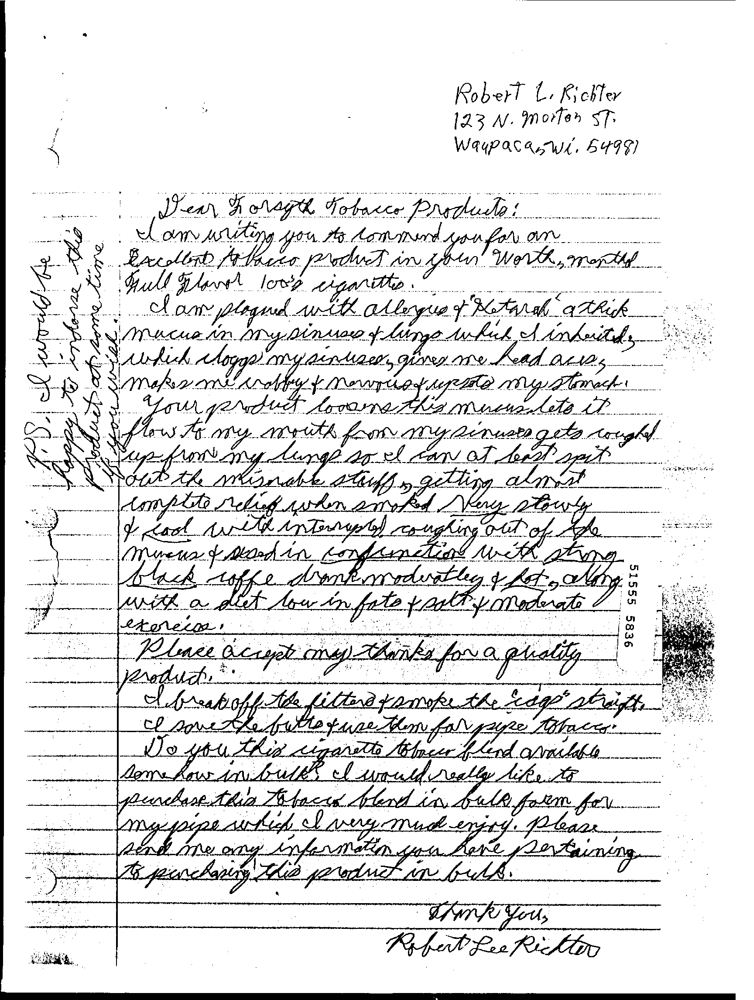 Robert L. Richter
123 N. Morton ST.
Waupaca, Wi. 54981
Dear Forsyth Tobacco Products:
I am writing you to commend you for an
Excellent tobacco product in your Worth, menthol
Full Flavor 100's cigarette.
I am plagued with allergies & "Katarah" a thick
mucus in my sinuses & lungs which I inherited,
which cloggs my sinuses, gives me head aces,
makes me wobby & nervous & upsets my stomach.
Your product loosens this mucus lets it
flow to my mouth from my sinuses gets coughed
up from my lungs so I can at least spit
out the misorable stuff, getting almost
complete relief when smoked very slowly
& cool with interrupted coughing out of the
mucus & used in conjunction with strong
black coffe drank moderatley & hot, along
with a diet low in fats & salt & moderate
exercise.
Please accept my thanks for a quality
product.
I break off the filters & smoke the "cigs" straight.
I save the butts & use them for pipe tobacco.
Do you this cigarette tobacco blend available
some how in bulk? I would really like to
purchase this tobacco blend in bulk form for
my pipe which I very much enjoy. Please
send me any information you have pertaining
to purchasing this product in bulk.
Thank You,
Robert Lee Richter
P.S. I would be
happy to indorse this
product at some time
if you wish.
51555 5836